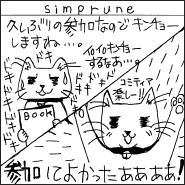 simprune
久しぶりの参加なのでキンチョー
しますね…。
ドキ
ドキドキドキ
BOOK
イロイロキンチョー
するなあ…。
ドキドキ
コミティア
楽しー!!
参加してよかったああああ!